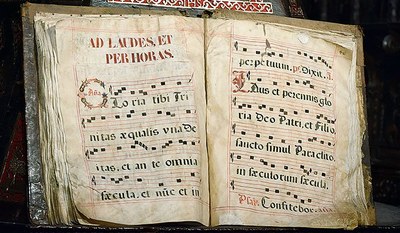 AD LAUDES, ET
PER HORAS.
Gloria tibi Tri
nitas æqualis vna De
itas, et an te omnia
sæcula, et nūc et in
perpetuum. ps. Dixit. A.
Laus et perennis glo
ria Deo Patri, et Filio,
sancto simul Paraclito,
in sæculorum sæcula.
Confitebor